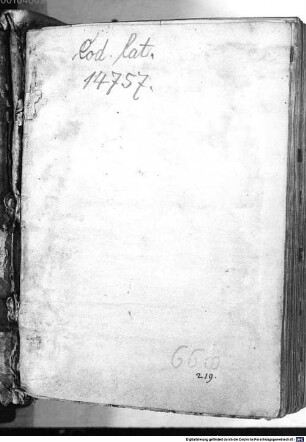 Cod. lat.
14757.
219.
Digitalisierung gefördert durch die Deutsche Forschungsgemeinschaft